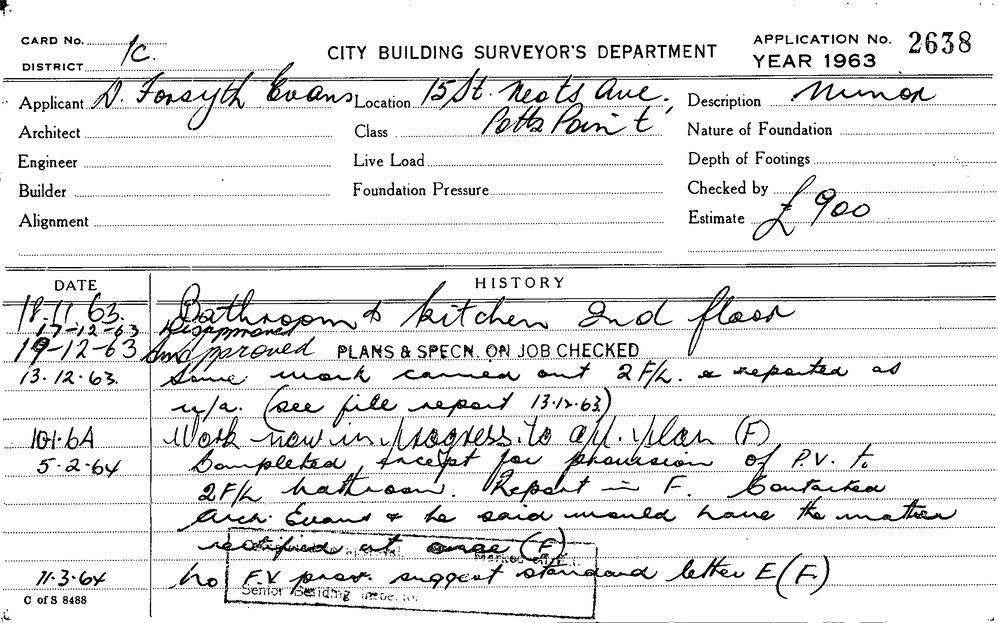 CARD No. 1c.
DISTRICT
CITY BUILDING SURVEYOR'S DEPARTMENT
APPLICATION No. 2638
YEAR 1963
Applicant D. Forsyth Evans Location 15 St. Neots Ave., Potts Point Description Minor
Architect Class Nature of Foundation
Engineer Live Load Depth of Footings
Builder Foundation Pressure Checked by
Alignment Estimate £900
DATE HISTORY
18.11.63. Bathroom & kitchen 2nd floor
17-12-63 Disapproved
19-12-63 approved PLANS & SPECN. ON JOB CHECKED
13.12.63. Some work carried out 2F/L. & reported as
u/a. (see file report 13.12.63)
10.1.64 Work now in progress to app. plan (F)
5.2.64 Completed, except for provision of P.V. to
2F/L bathroom. Report in F. Contacted
Arch. Evans & he said would have the matter
rectified at once (F)
11.3.64 No P.V. prov. suggest standard letter E (F.)
Senior Building
C of S 8488